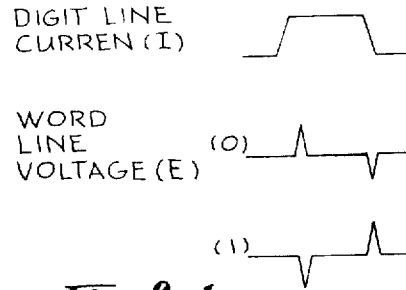 DIGIT LINE
CURREN(I)
WORD
LINE
VOLTAGE(E)
(0)
(1)